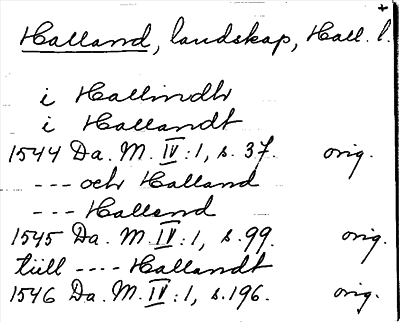 Halland, landskap, Hall. l.
i Hallindh
i Hallandt
1544 Da. M. IV:1, s. 37. orig.
--- och Halland
--- Halland
1545 Da. M. IV:1, s. 99. orig.
tiill ---- Hallandt
1546 Da. M. IV:1, s. 196. orig.